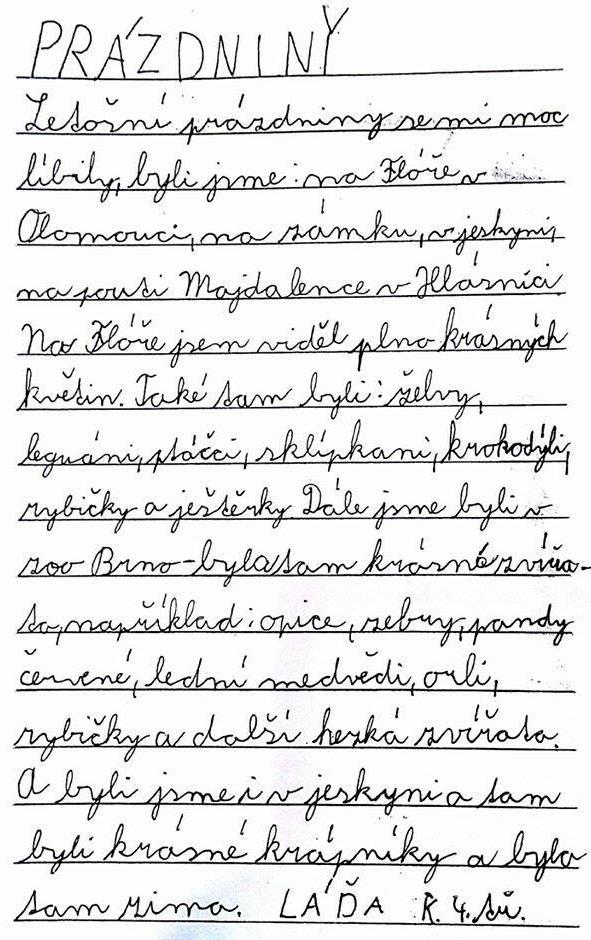 PRÁZDNINY
Letošní prázdniny se mi moc
líbily, byli jsme: na Flóře v
Olomouci, na zámku, v jeskyni,
na pouti Majdalence v Hlásnici.
Na Flóře jsem viděl plno krásných
květin. Také tam byli: želvy,
leguáni, ptáčci, sklípkani, krokodýli,
rybičky a ještěrky. Dále jsme byli v
zoo Brno-byla tam krásné zvířa-
ta, například: opice, zebry, pandy
červené, lední medvědi, orli,
rybičky a další hezká zvířata.
A byli jsme i v jeskyni a tam
byli krásné krápníky a byla
tam zima. LÁĎA R. 4. tř.